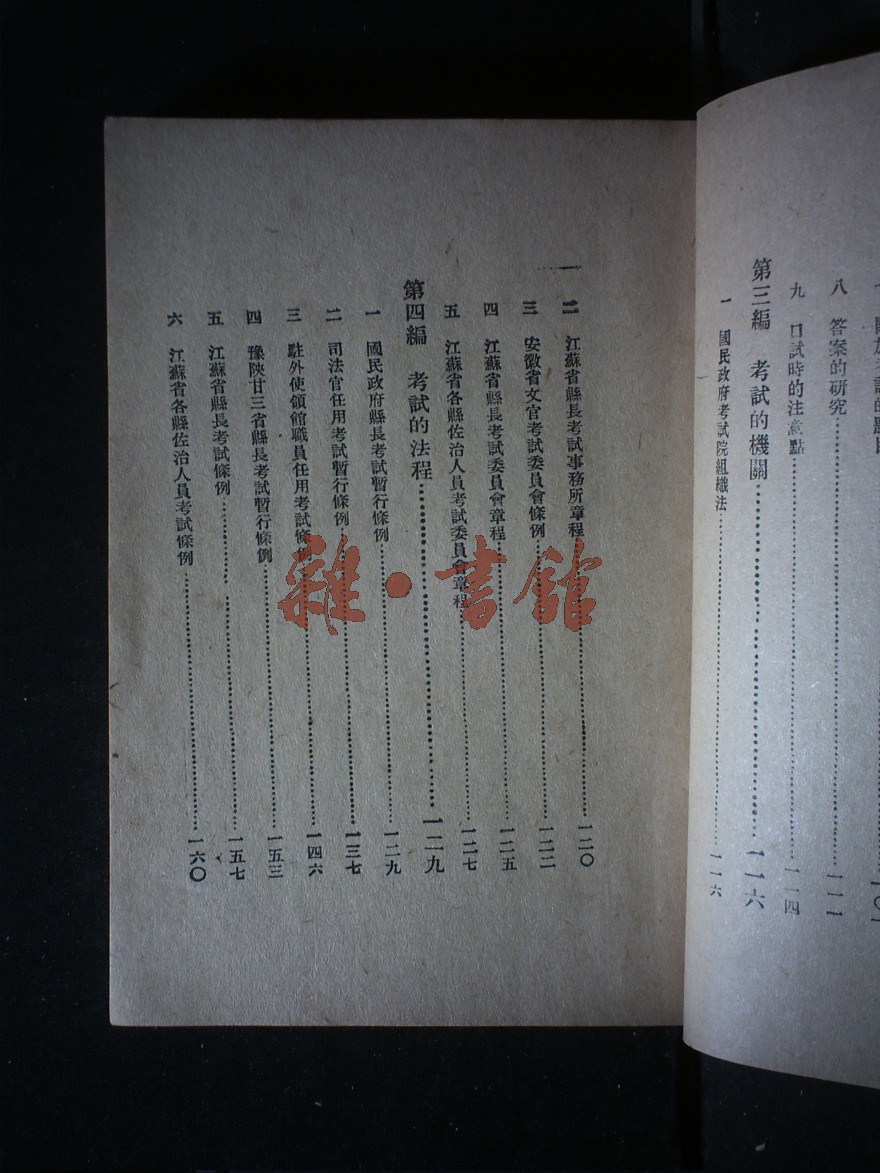 八 答案的研究⋯⋯一一一
九 口試時的注意點⋯⋯一一四
第三編 考試的機關⋯⋯一一六
一 國民政府考試院組織法⋯⋯一一六
二 江蘇省縣長考試事務所章程⋯⋯一二〇
三 安徽省文官考試委員會條例⋯⋯一二二
四 江蘇省縣長考試委員會章程⋯⋯一二五
五 江蘇省各縣佐治人員考試委員會章程⋯⋯一二七
第四編 考試的法程⋯⋯一二九
一 國民政府縣長考試暫行條例⋯⋯一二九
二 司法官任用考試暫行條例⋯⋯一三七
三 駐外使領館職員任用考試條例⋯⋯一四六
四 豫陝甘三省縣長考試暫行條例⋯⋯一五三
五 江蘇省縣長考試條例⋯⋯一五七
六 江蘇省各縣佐治人員考試條例⋯⋯一六〇
雜·書館